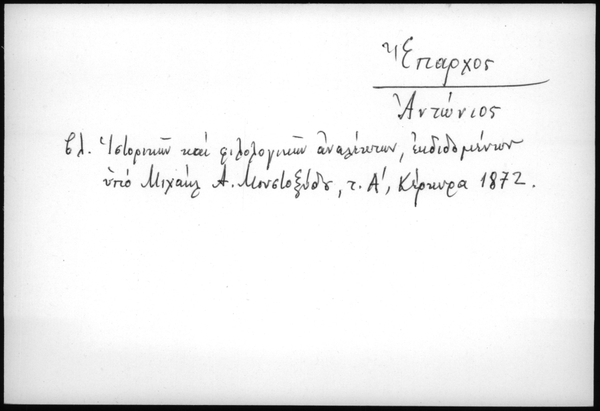 Ἔπαρχος
Ἀντώνιος
βλ. Ἱστορικῶν καὶ φιλολογικῶν ἀναλέκτων, ἐκδιδομένων
ὑπὸ Μιχαὴλ Α. Μουστοξύδου, τ. Α', Κέρκυρα 1872.